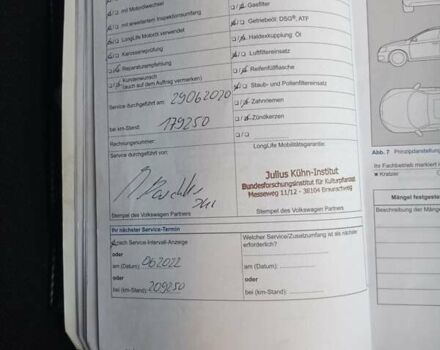 mit Motorölwechsel
Gasfilter
mit erweitertem Inspektionsumfang
Getriebeöl: DSG®, ATF
LongLife Motoröl verwendet
Haldexkupplung Öl
Karosserieprüfung
Luftfiltereinsatz
Reparaturempfehlung
Reifenfüllflasche
Kundenwunsch
(auch auf dem Auftrag vermerken)
Staub- und Pollenfiltereinsatz
Service durchgeführt am: 29062020
Zahnriemen
bei km-Stand: 179250
Zündkerzen
Rechnungsnummer:
Service durchgeführt von:
LongLife Mobilitätsgarantie:
Julius Kühn-Institut
Bundesforschungsinstitut für Kulturpflanzen
Messeweg 11/12 - 38104 Braunschweig
Stempel des Volkswagen Partners
Stempel des Volkswagen Partners
Ihr nächster Service-Termin
nach Service-Intervall-Anzeige
oder
am (Datum): 062022
oder
bei (km-Stand): 209250
Welcher Service/Zusatzumfang ist als nächstes
erforderlich?
am (Datum):
oder
bei (km-Stand):
Abb. 7 Prinzipdarstellung
Ihr Fachbetrieb markiert
Kratzer
Mängel festgestellt
Beschreibung der Mängel